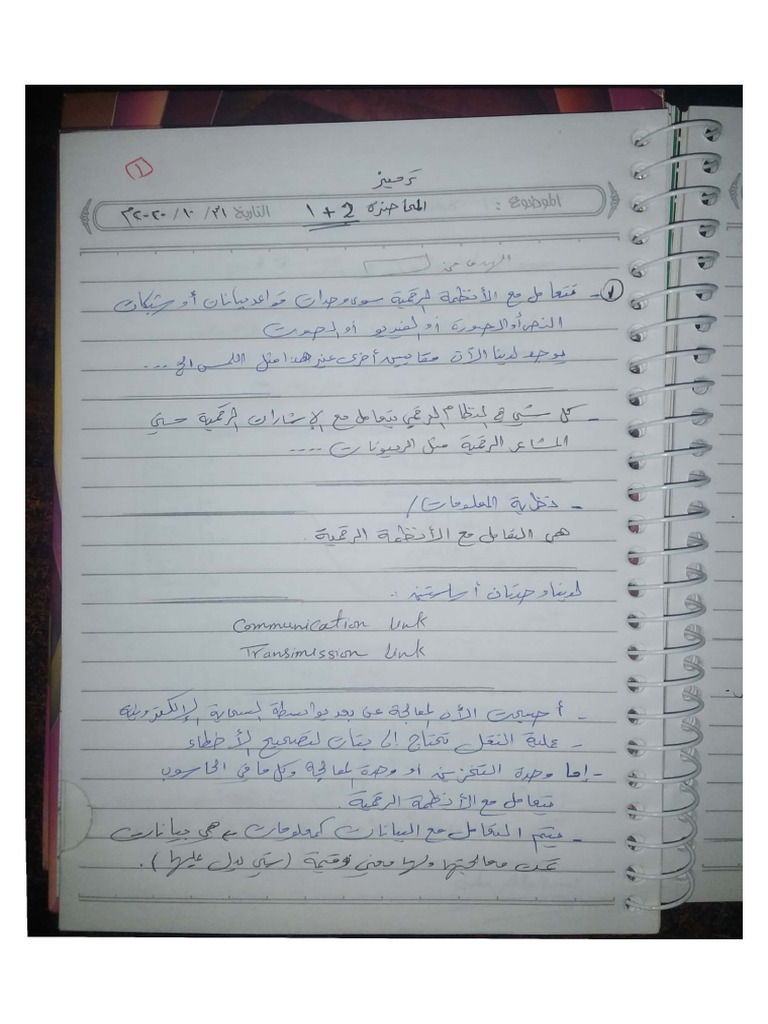 ١
ترميز
الموضوع : المحاضرة 2 + ١ التاريخ ٣١/ ١٠/ ٢٠٢٠م
الهدف من
- نتعامل مع الأنظمة الرقمية سوى وحدات قواعد بيانات أو شبكات
النص أو الصورة أو الفيديو أو الصوت
يوجد لدينا الآن مقاييس أخرى غير هذا مثل اللمس الخ ....
- كل شي في النظام الرقمي يتعامل مع الإشارات الرقمية حتى
المشاعر الرقمية مثل الربوتات ....
- نظرية المعلومات /
هي التعامل مع الأنظمة الرقمية .
لدينا وحدتان أساسيتين :.
Communication Link
Transimission Link
- أصبحت الآن المعالجة عن بعد بواسطة السحابة الإلكترونية
- عملية النقل تحتاج إلى بتات لتصحيح الأخطاء
- إما وحدة التخزين او وحدة المعالجة وكل ما في الحاسوب
يتعامل مع الأنظمة الرقمية .
- يتم التعامل مع البيانات كمعلومات هي بيانات
تمت معالجتها ولها معنى وقيمة (شي يدل عليها ) .